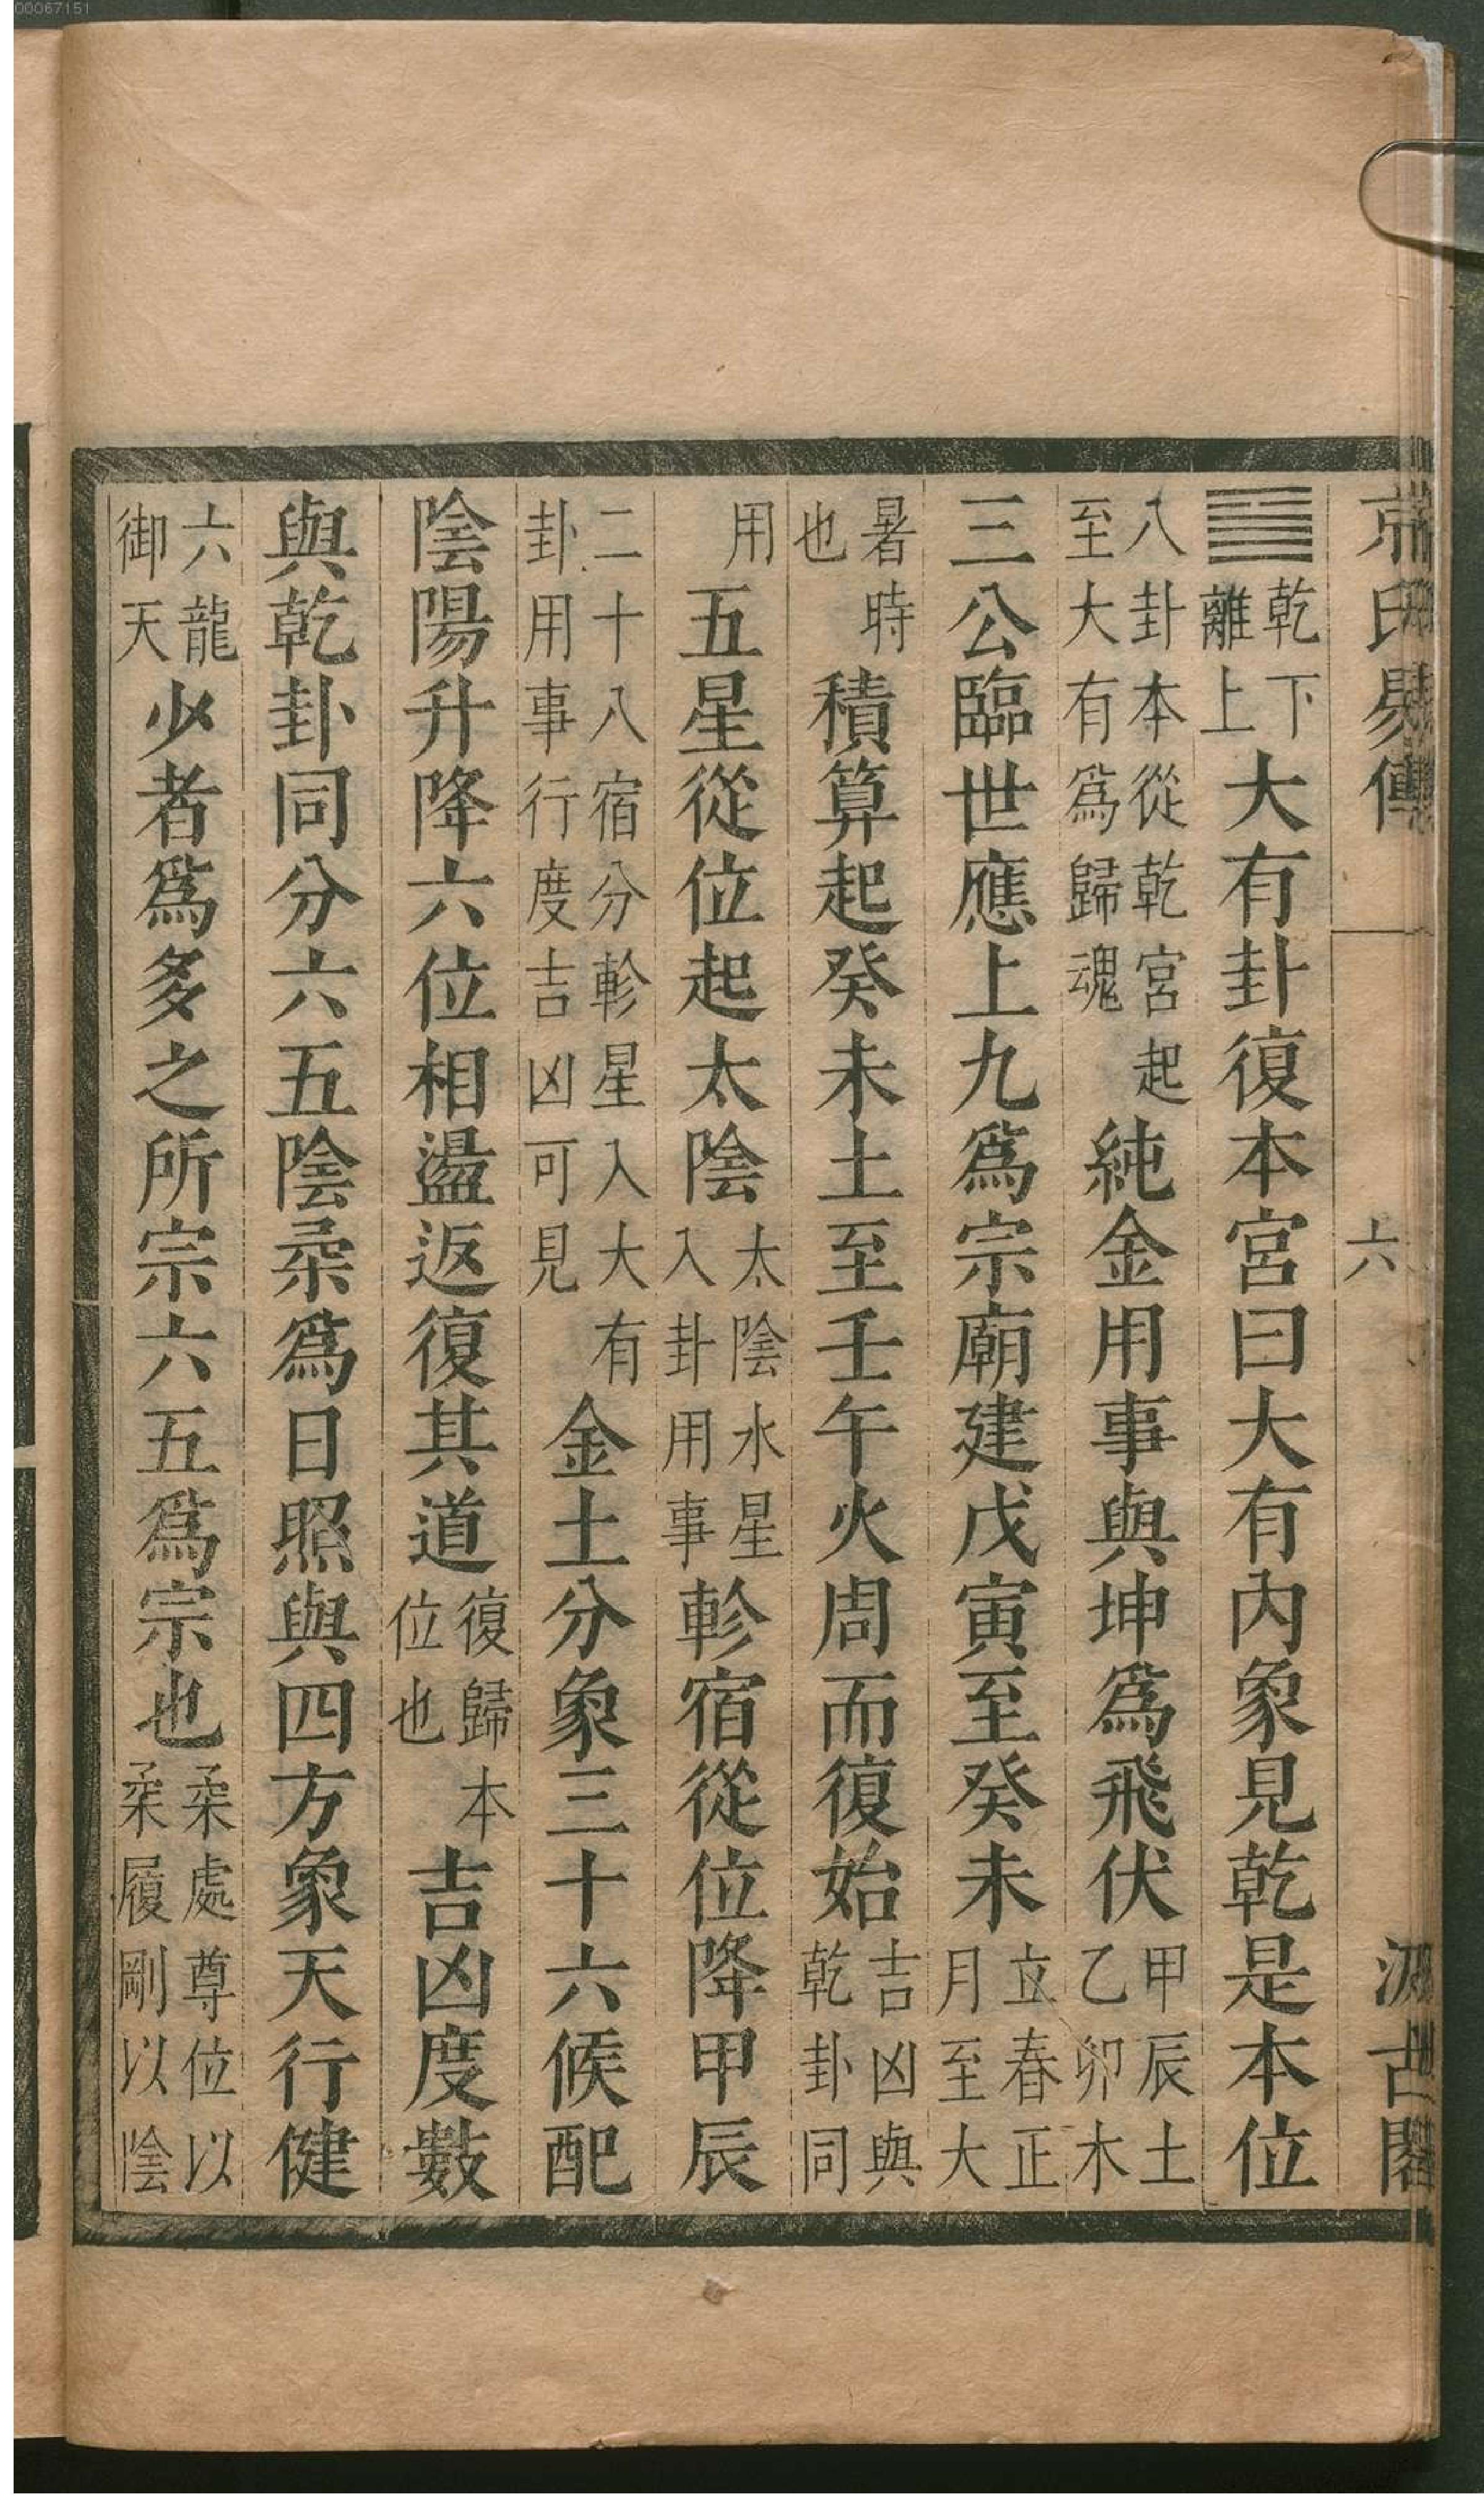 京氏易傳 六 汲古閣
䷍乾下離上大有卦復本宮曰大有內象見乾是本位
八卦本從乾宮起至大有爲歸魂純金用事與坤爲飛伏甲辰土乙卯木
三公臨世應上九爲宗廟建戊寅至癸未立春正月至大
暑時也積算起癸未土至壬午火周而復始吉凶與乾卦同
用五星從位起太陰太陰水星入卦用事軫宿從位降甲辰
二十八宿分軫星入大有卦用事行度吉凶可見金土分象三十六候配
陰陽升降六位相盪返復其道復歸本位也吉凶度數
與乾卦同分六五陰柔爲日照與四方象天行健
六龍御天少者爲多之所宗六五爲宗也柔處尊位以柔履剛以陰
00067151